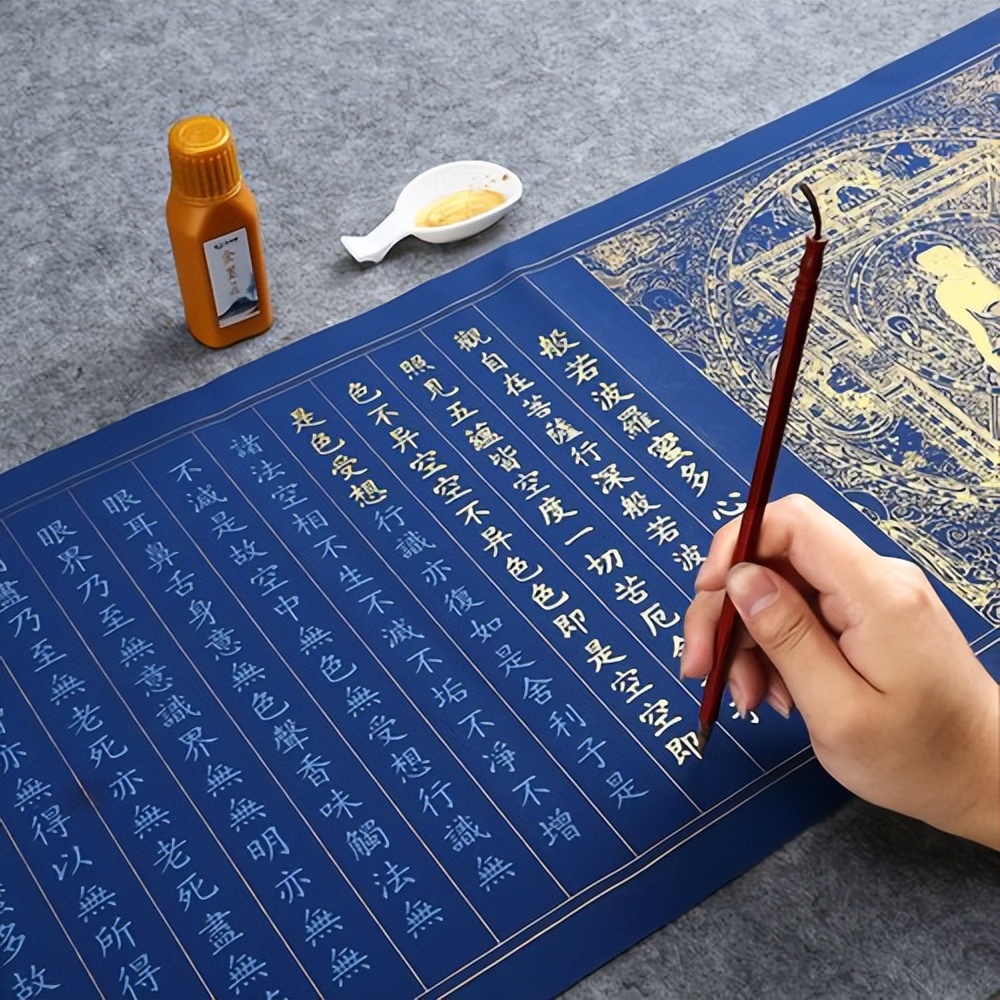 般若波羅蜜多心
觀自在菩薩行深般若波
照見五蘊皆空度一切苦厄舍子
色不异空空不异色色即是空空即
是色受想行識亦復如是舍利子是
諸法空相不生不滅不垢不淨不增
不滅是故空中無色無受想行識無
眼耳鼻舌身意無色聲香味觸法無
眼界乃至無意識界無無明亦無無
盡乃至無老死亦無老死盡無
亦無得以無所得
多故